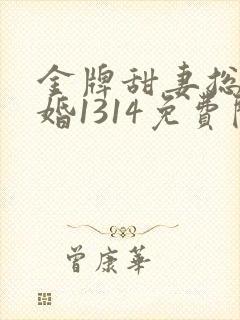 金牌甜妻总
婚1314免費
曾康華